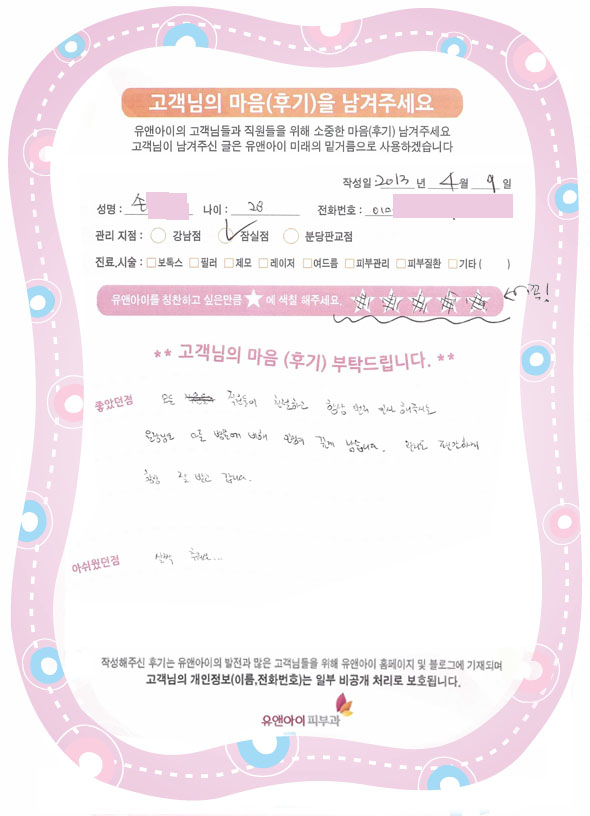 고객님의 마음(후기)을 남겨주세요
유앤아이의 고객님들과 직원들을 위해 소중한 마음(후기) 남겨주세요
고객님이 남겨주신 글은 유앤아이 미래의 밑거름으로 사용하겠습니다
작성일: 2013 년 4 월 9 일
성명 : 손 나이 : 28 전화번호 : 010
관리 지점 : 강남점 잠실점 분당판교점
진료,시술 : 보톡스 필러 제모 레이저 여드름 피부관리 피부질환 기타 ( )
유앤아이를 칭찬하고 싶은만큼 ★에 색칠 해주세요. 꼭!
** 고객님의 마음 (후기) 부탁드립니다. **
좋았던점 모든 직원들이 친절하고 항상 먼저 인사 해주시는
다른 병원에 비해 남습니다. 편안하게
항상 잘 받고 갑니다.
아쉬웠던점 살짝 추워요...
작성해주신 후기는 유앤아이의 발전과 많은 고객님들을 위해 유앤아이 홈페이지 및 블로그에 기재되며
고객님의 개인정보(이름,전화번호)는 일부 비공개 처리로 보호됩니다.
유앤아이피부과